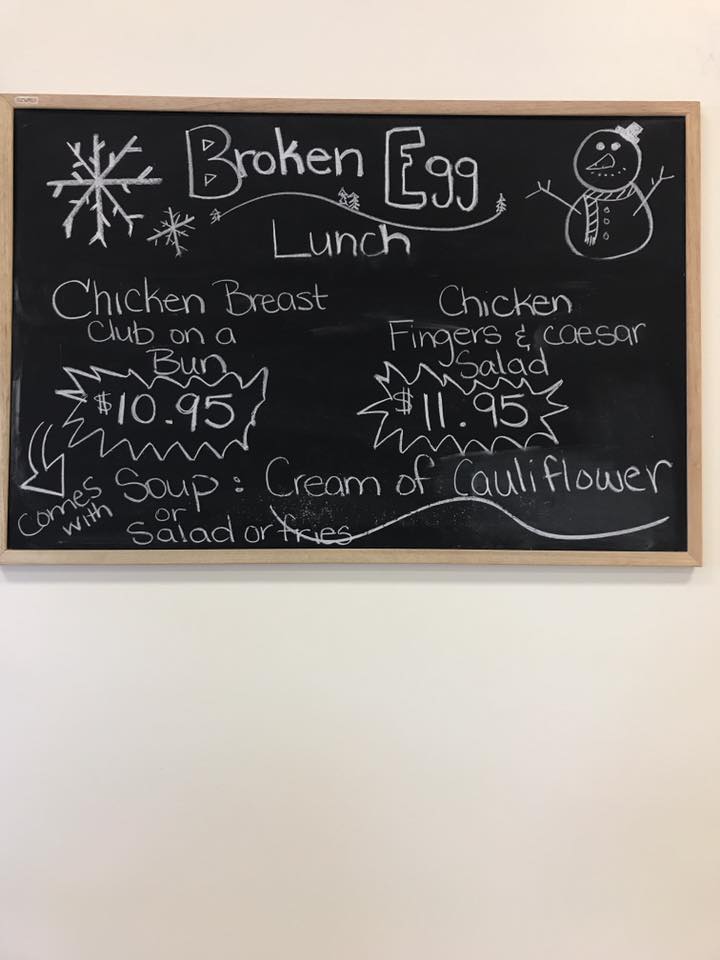 Broken Egg
Lunch
Chicken Breast
Club on a
Bun
$10.95
Chicken
Fingers & caesar
Salad
$11.95
comes
with
Soup: Cream of Cauliflower
or
Salad or fries